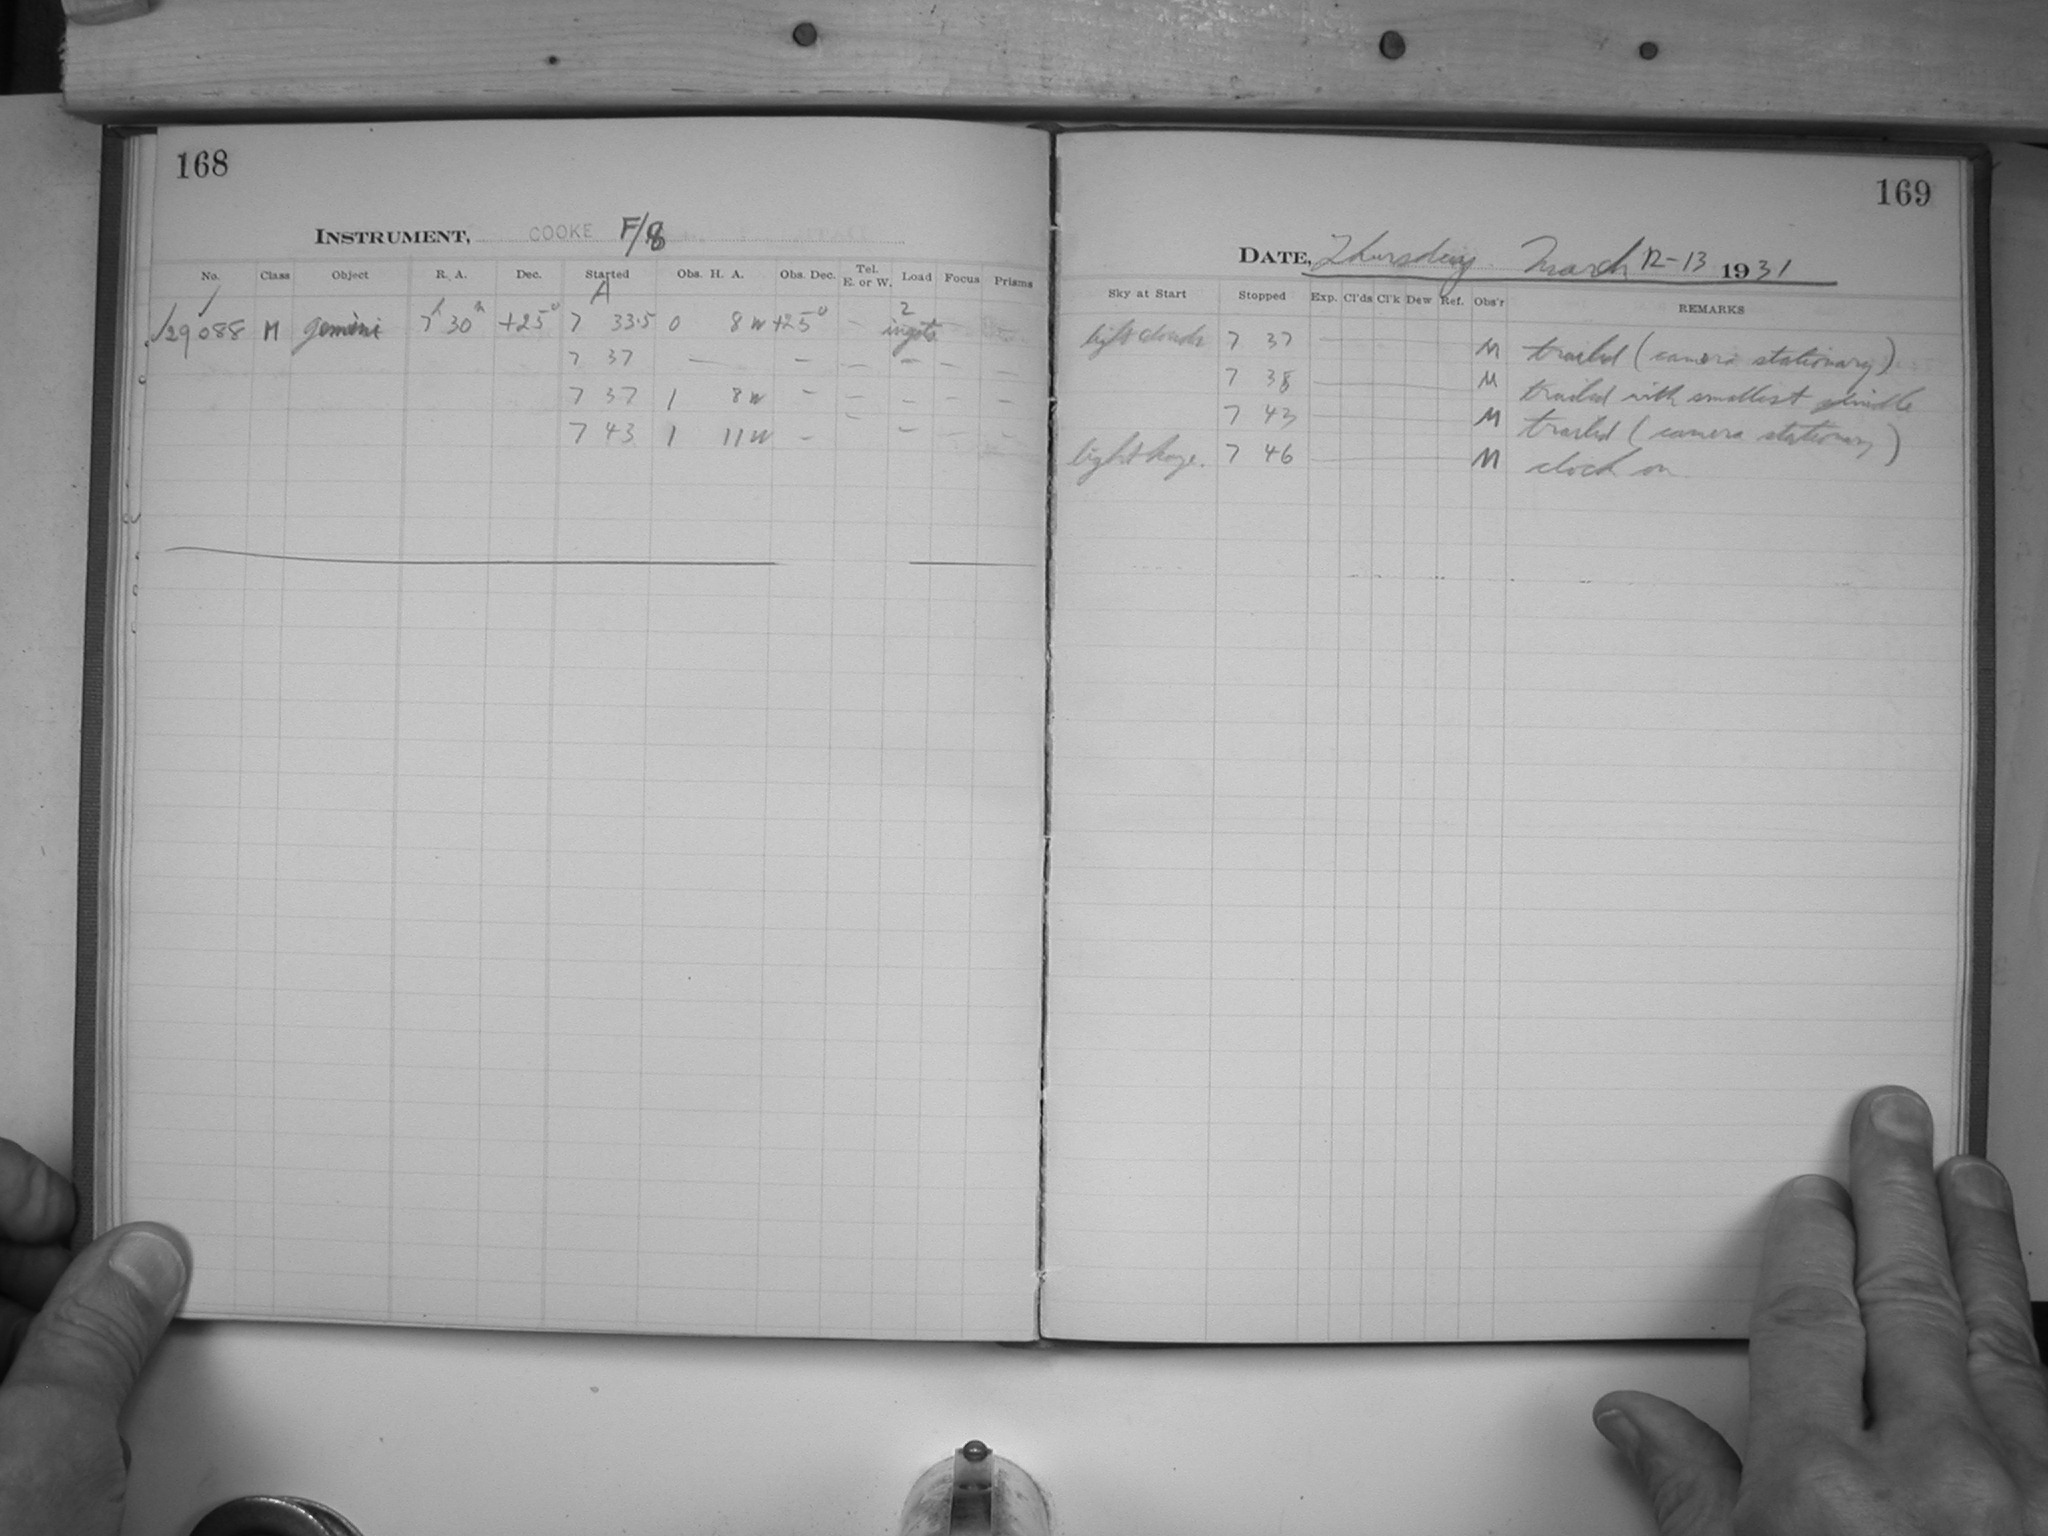 168
INSTRUMENT, COOKE F/8
No. Class Object R. A. Dec. Started Obs. H. A. Obs. Dec. Tel. E. or W. Load Focus Prisms
A
29088 M Gemini 7h 30m +25° 7 33.5 0 8 W +25° – 2 ingots
7 37 — – – – – –
7 37 1 8 W – – – – –
7 43 1 11 W – – – – –
169
DATE, Thursday March 12-13 1931
Sky at Start Stopped Exp. Cl'ds Cl'k Dew Ref. Obs'r REMARKS
light clouds 7 37 M trailed (camera stationary)
7 38 M trailed with smallest
7 43 M trailed (camera stationary)
light haze. 7 46 M clock on